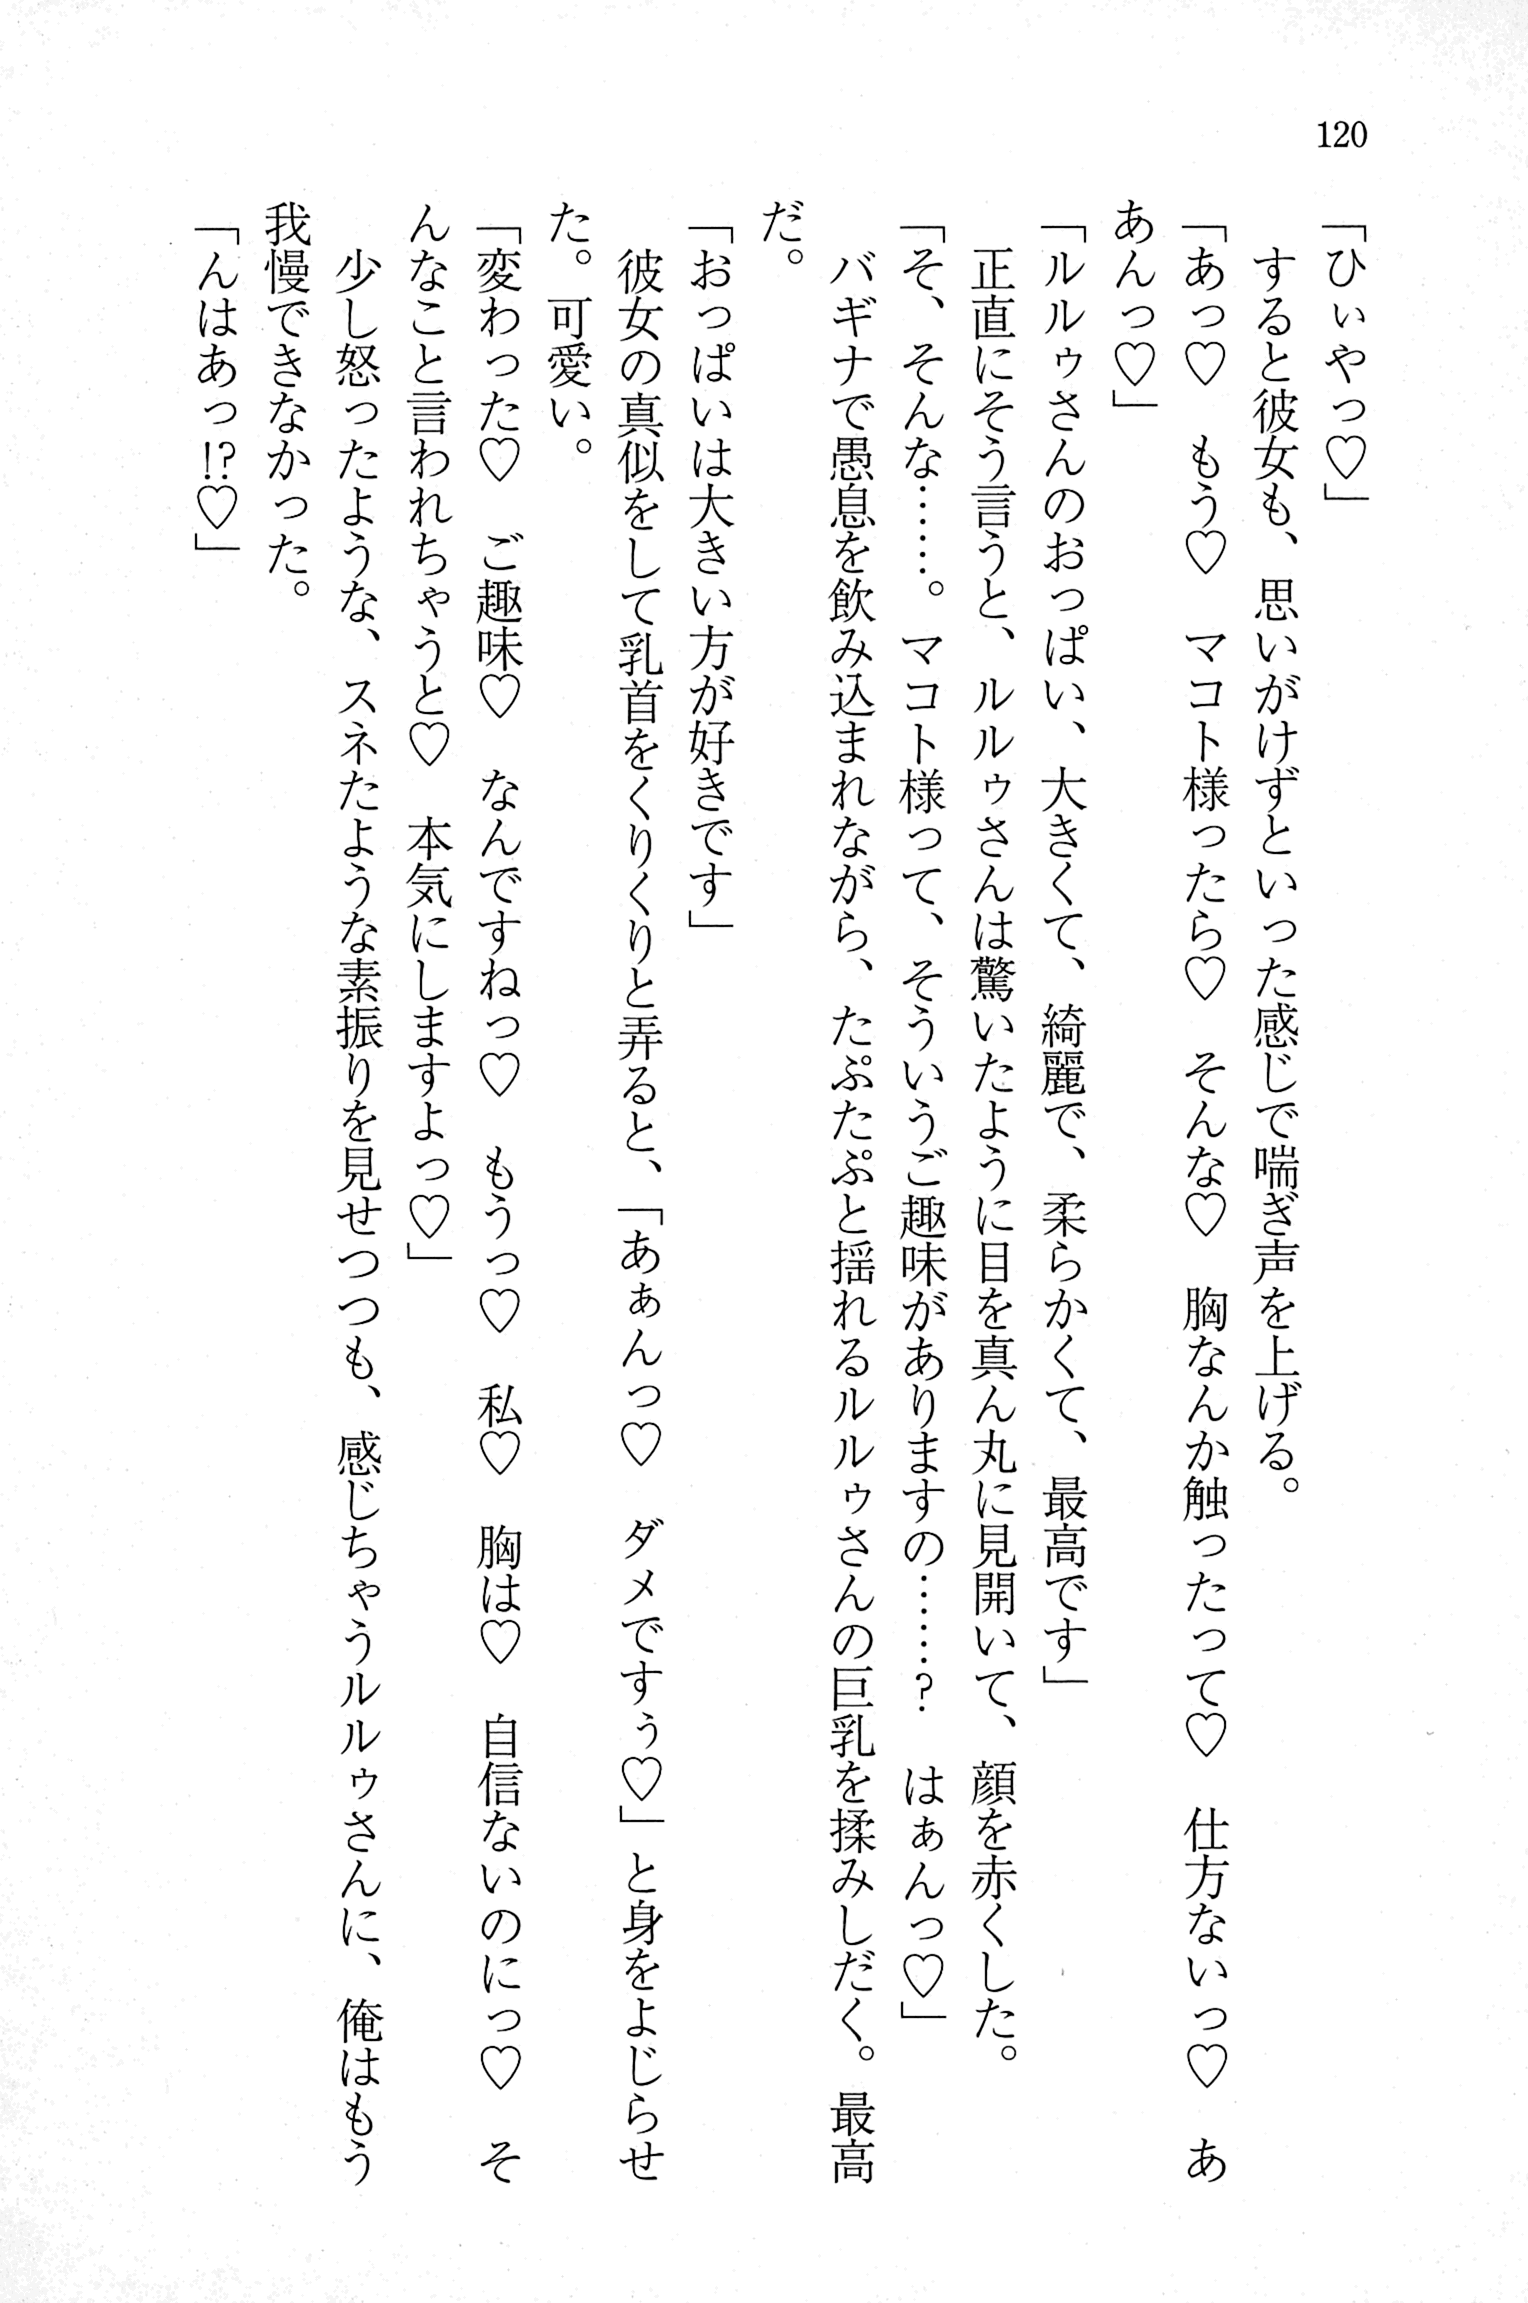 120
「ひぃやっ♡」
　すると彼女も、思いがけずといった感じで喘ぎ声を上げる。
「あっ♡　もう♡　マコト様ったら♡　そんな♡　胸なんか触ったって♡　仕方ないっ♡　あ
あんっ♡」
「ルルゥさんのおっぱい、大きくて、綺麗で、柔らかくて、最高です」
　正直にそう言うと、ルルゥさんは驚いたように目を真ん丸に見開いて、顔を赤くした。
「そ、そんな……。マコト様って、そういうご趣味がありますの……？　はぁんっ♡」
　バギナで愚息を飲み込まれながら、たぷたぷと揺れるルルゥさんの巨乳を揉みしだく。最高
だ。
「おっぱいは大きい方が好きです」
　彼女の真似をして乳首をくりくりと弄ると、「あぁんっ♡　ダメですぅ♡」と身をよじらせ
た。可愛い。
「変わった♡　ご趣味♡　なんですねっ♡　もうっ♡　私♡　胸は♡　自信ないのにっ♡　そ
んなこと言われちゃうと♡　本気にしますよっ♡」
　少し怒ったような、スネたような素振りを見せつつも、感じちゃうルルゥさんに、俺はもう
我慢できなかった。
「んはあっ!?♡」